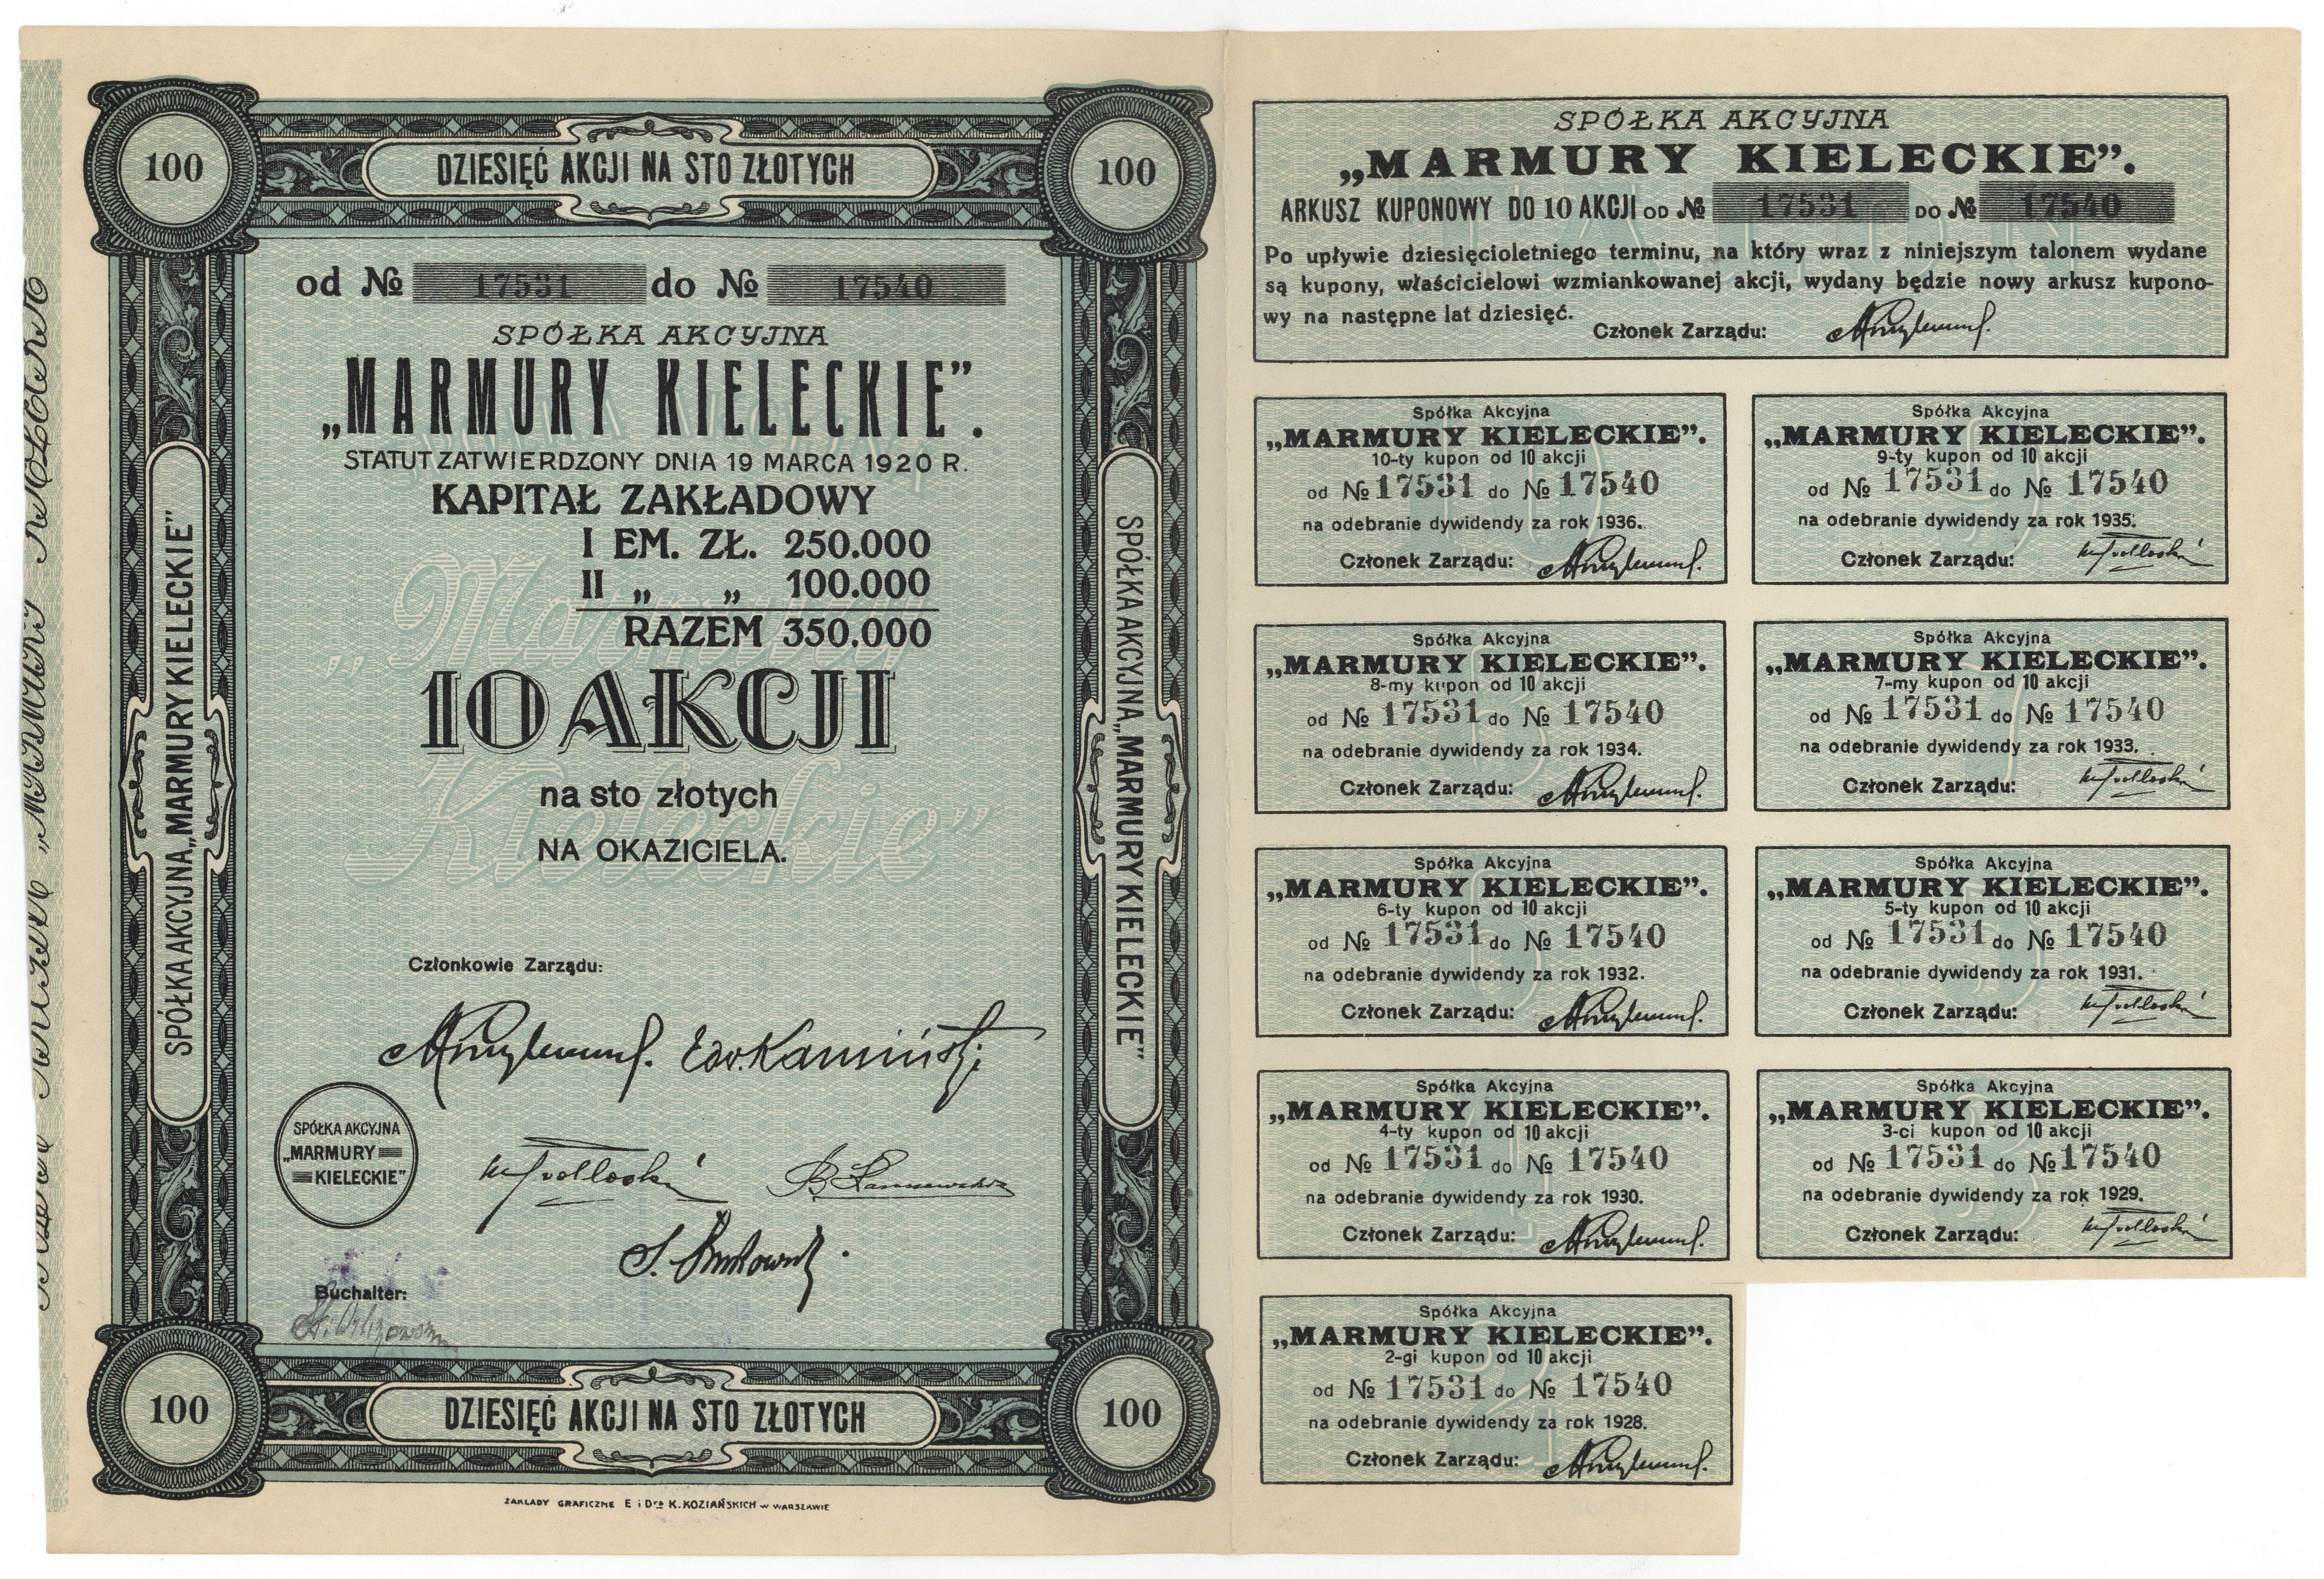 100
DZIESIĘĆ AKCJI NA STO ZŁOTYCH
100
od № 17531 do № 17540
SPÓŁKA AKCYJNA
„MARMURY KIELECKIE”.
STATUT ZATWIERDZONY DNIA 19 MARCA 1920 R.
KAPITAŁ ZAKŁADOWY
I EM. ZŁ. 250.000
II „ „ 100.000
RAZEM 350.000
10 AKCJI
na sto złotych
NA OKAZICIELA.
„Marmury
Kieleckie”
SPÓŁKA AKCYJNA „MARMURY KIELECKIE”
SPÓŁKA AKCYJNA „MARMURY KIELECKIE”
Członkowie Zarządu:
Edw. Kamiński
SPÓŁKA AKCYJNA
„MARMURY
KIELECKIE”
Buchalter:
100
DZIESIĘĆ AKCJI NA STO ZŁOTYCH
100
ZAKŁADY GRAFICZNE E i Dra K. KOZIAŃSKICH w WARSZAWIE
SPÓŁKA AKCYJNA
„MARMURY KIELECKIE”.
ARKUSZ KUPONOWY DO 10 AKCJI OD № 17531 DO № 17540
Po upływie dziesięcioletniego terminu, na który wraz z niniejszym talonem wydane
są kupony, właścicielowi wzmiankowanej akcji, wydany będzie nowy arkusz kupono-
wy na następne lat dziesięć.
Członek Zarządu:
Spółka Akcyjna
„MARMURY KIELECKIE”.
10-ty kupon od 10 akcji
od № 17531 do № 17540
na odebranie dywidendy za rok 1936.
Członek Zarządu:
Spółka Akcyjna
„MARMURY KIELECKIE”.
9-ty kupon od 10 akcji
od № 17531 do № 17540
na odebranie dywidendy za rok 1935.
Członek Zarządu:
Spółka Akcyjna
„MARMURY KIELECKIE”.
8-my kupon od 10 akcji
od № 17531 do № 17540
na odebranie dywidendy za rok 1934.
Członek Zarządu:
Spółka Akcyjna
„MARMURY KIELECKIE”.
7-my kupon od 10 akcji
od № 17531 do № 17540
na odebranie dywidendy za rok 1933.
Członek Zarządu:
Spółka Akcyjna
„MARMURY KIELECKIE”.
6-ty kupon od 10 akcji
od № 17531 do № 17540
na odebranie dywidendy za rok 1932.
Członek Zarządu:
Spółka Akcyjna
„MARMURY KIELECKIE”.
5-ty kupon od 10 akcji
od № 17531 do № 17540
na odebranie dywidendy za rok 1931.
Członek Zarządu:
Spółka Akcyjna
„MARMURY KIELECKIE”.
4-ty kupon od 10 akcji
od № 17531 do № 17540
na odebranie dywidendy za rok 1930.
Członek Zarządu:
Spółka Akcyjna
„MARMURY KIELECKIE”.
3-ci kupon od 10 akcji
od № 17531 do № 17540
na odebranie dywidendy za rok 1929.
Członek Zarządu:
Spółka Akcyjna
„MARMURY KIELECKIE”.
2-gi kupon od 10 akcji
od № 17531 do № 17540
na odebranie dywidendy za rok 1928.
Członek Zarządu: